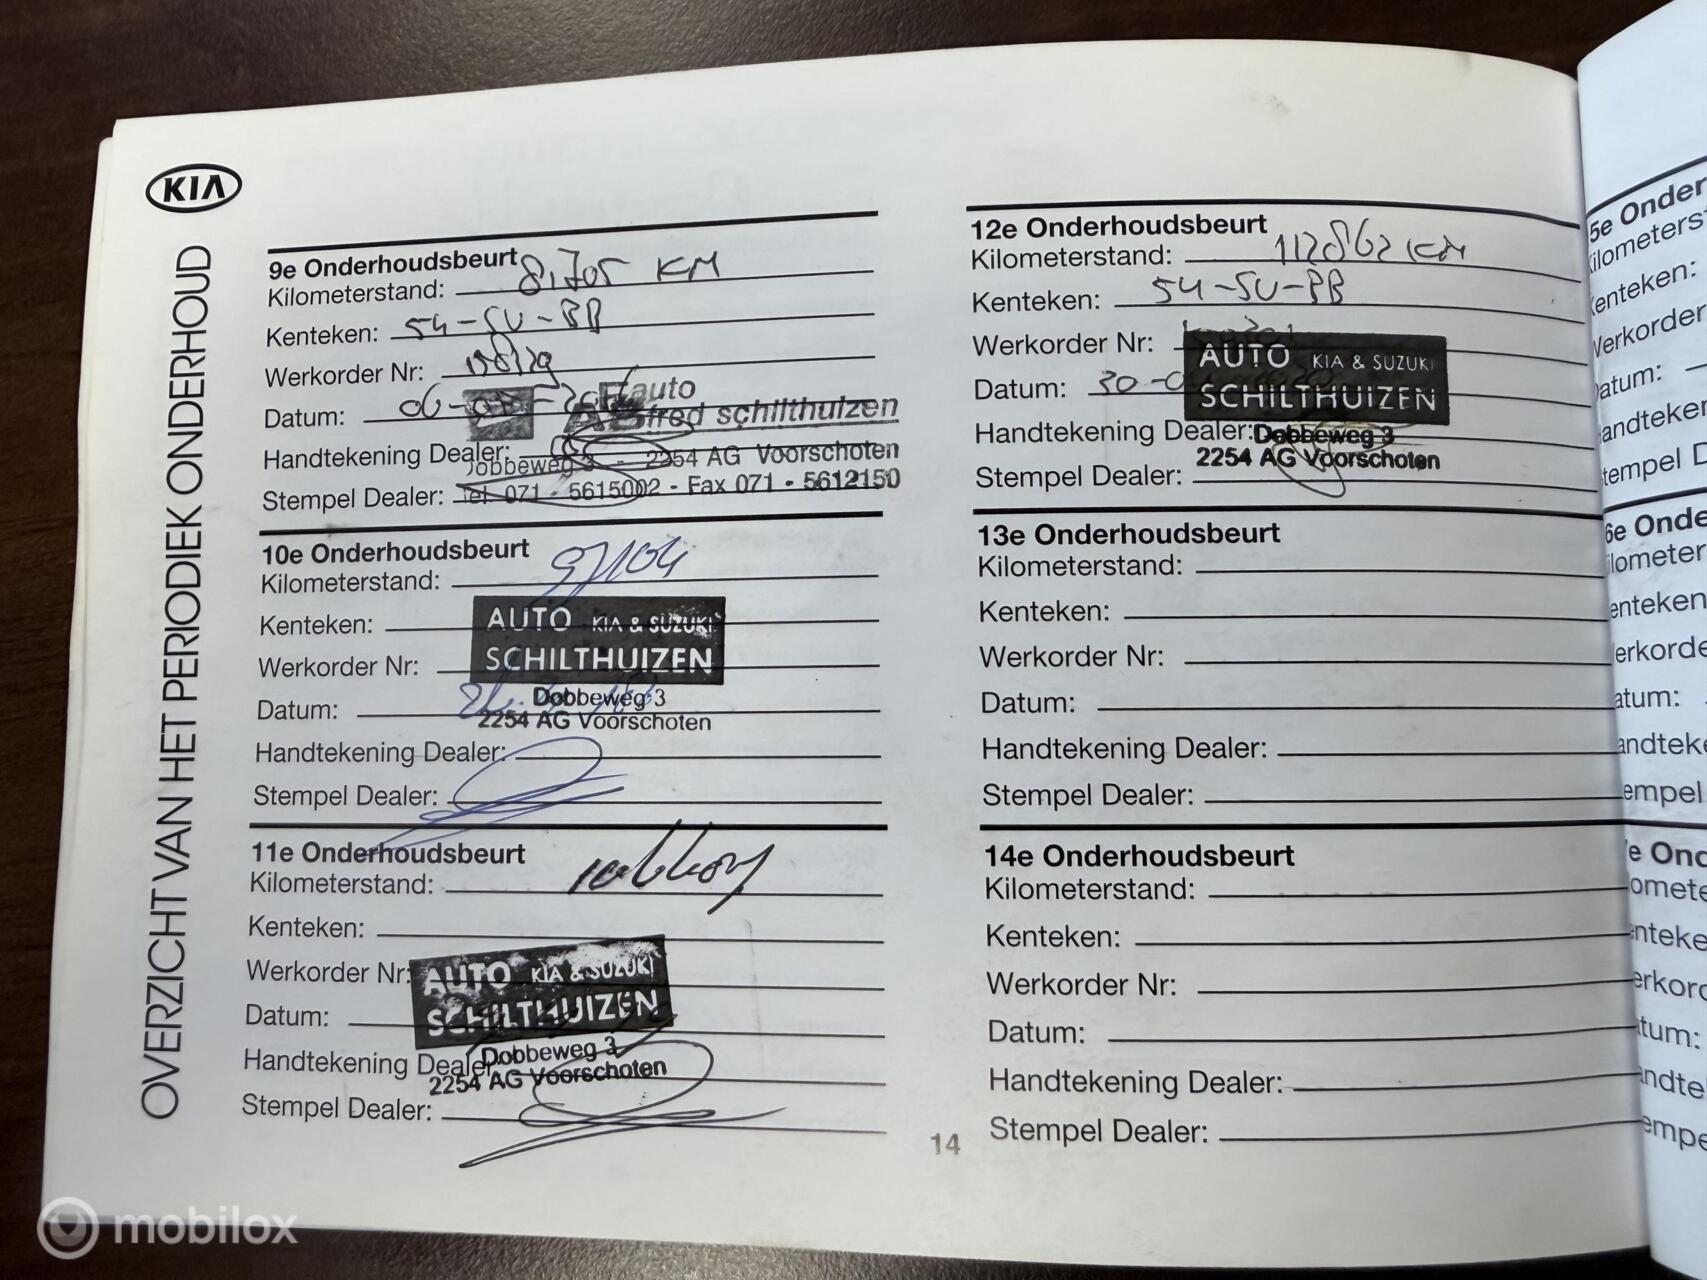 KIA
OVERZICHT VAN HET PERIODIEK ONDERHOUD
9e Onderhoudsbeurt
Kilometerstand: 81.705 KM
Kenteken: 54-SU-BB
Werkorder Nr:
Datum: 06-
auto
Alfred schilthuizen
Handtekening Dealer:
Dobbeweg 3 - 2254 AG Voorschoten
Stempel Dealer:
Tel. 071 - 5615002 - Fax 071 - 5612150
10e Onderhoudsbeurt
Kilometerstand: 97104
Kenteken:
AUTO KIA & SUZUKI
Werkorder Nr:
SCHILTHUIZEN
Datum:
Dobbeweg 3
2254 AG Voorschoten
Handtekening Dealer:
Stempel Dealer:
11e Onderhoudsbeurt
Kilometerstand:
Kenteken:
Werkorder Nr:
AUTO KIA & SUZUKI
Datum:
SCHILTHUIZEN
Handtekening Dealer:
Dobbeweg 3
2254 AG Voorschoten
Stempel Dealer:
12e Onderhoudsbeurt
Kilometerstand: 112862 KM
Kenteken: 54-SU-BB
Werkorder Nr:
AUTO KIA & SUZUKI
Datum: 30-
SCHILTHUIZEN
Handtekening Dealer:
Dobbeweg 3
2254 AG Voorschoten
Stempel Dealer:
13e Onderhoudsbeurt
Kilometerstand:
Kenteken:
Werkorder Nr:
Datum:
Handtekening Dealer:
Stempel Dealer:
14e Onderhoudsbeurt
Kilometerstand:
Kenteken:
Werkorder Nr:
Datum:
Handtekening Dealer:
Stempel Dealer:
14
mobilox